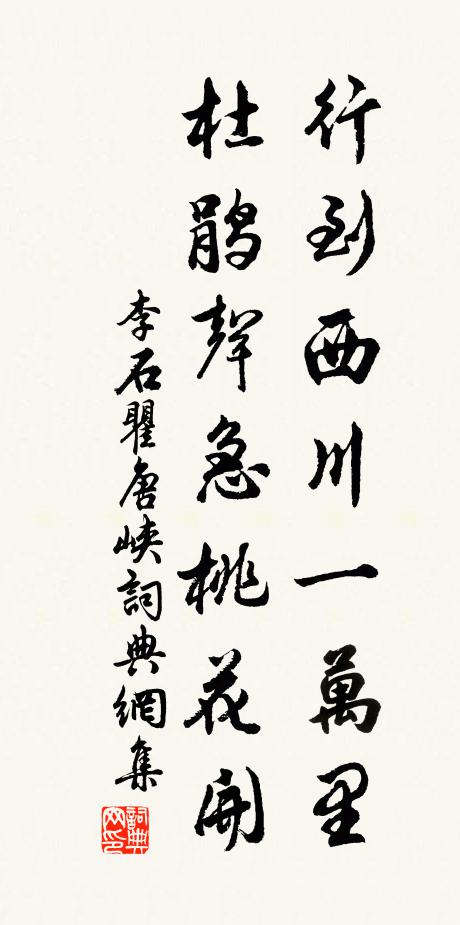 行到西川一萬里
杜鵑聲急桃花開
李石瞿唐峽詞典網集
詞典
网印